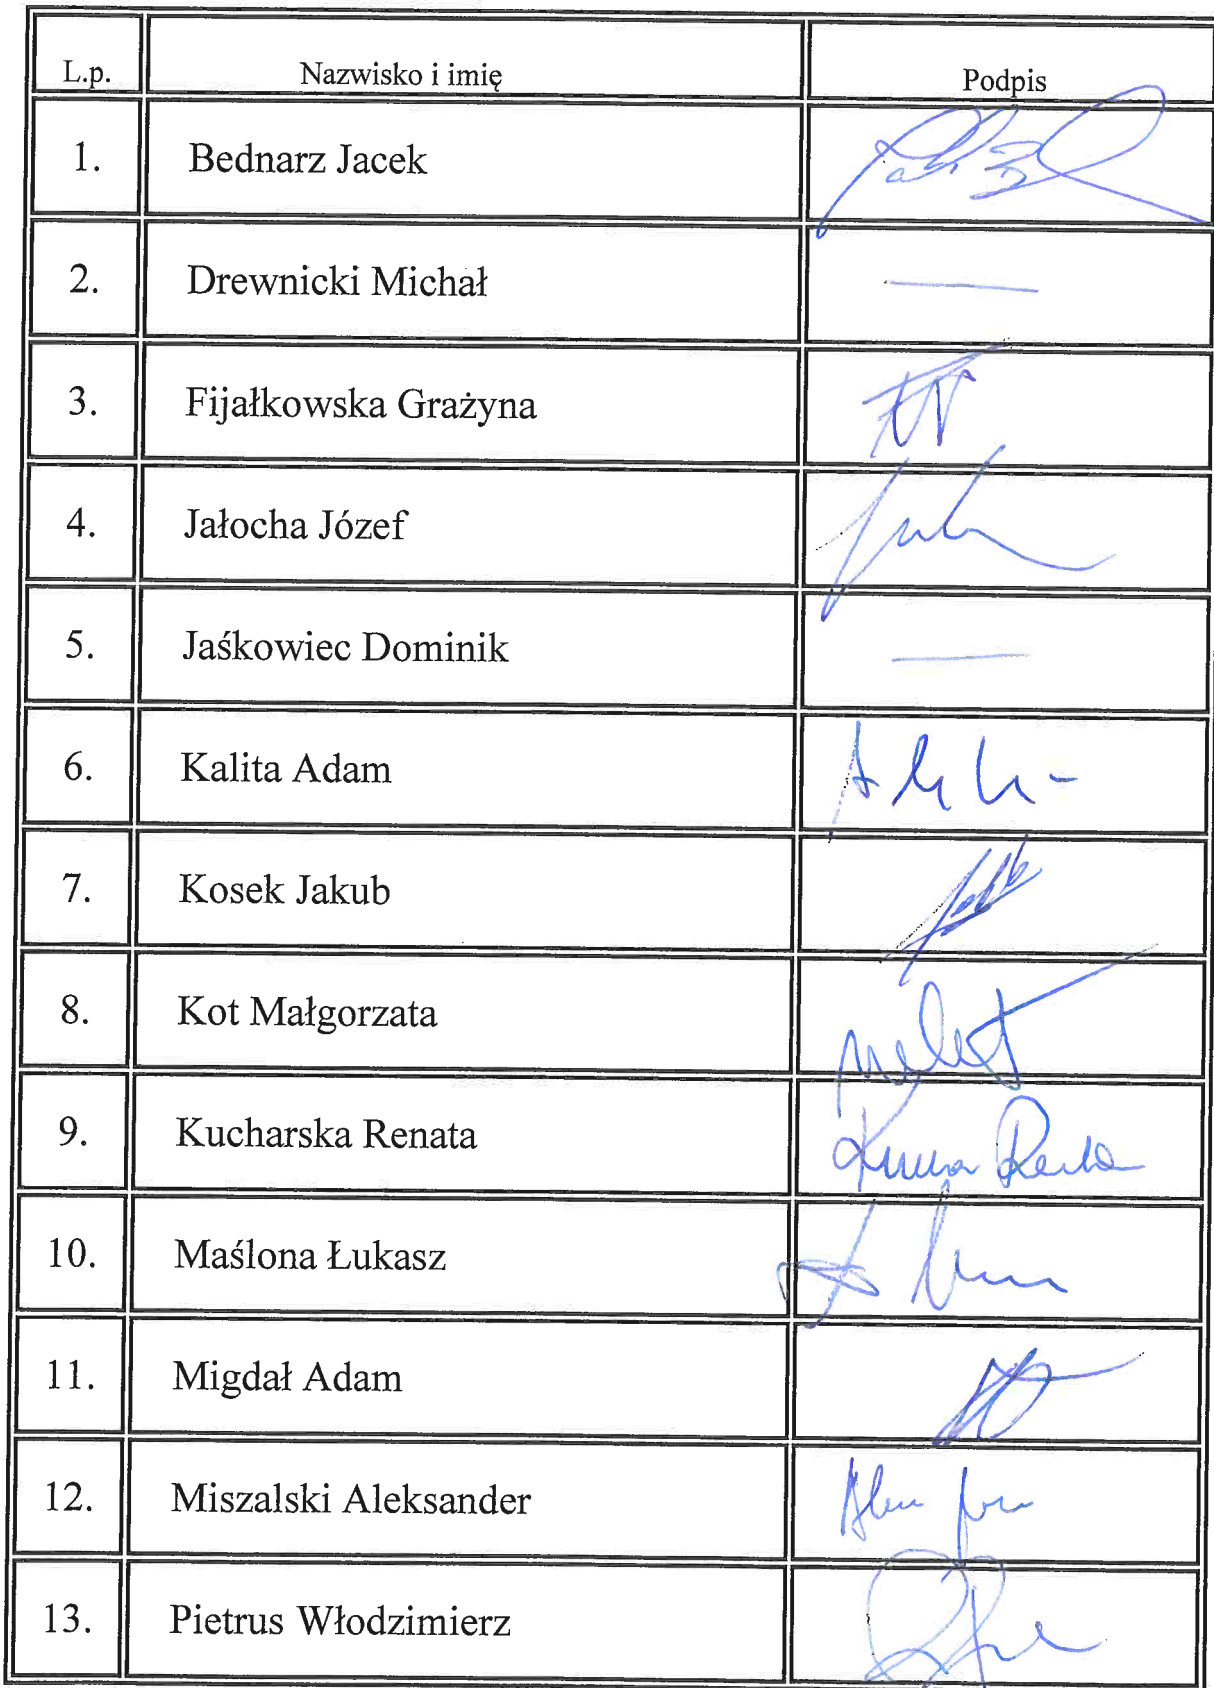 L.p. Nazwisko i imię Podpis
1. Bednarz Jacek
2. Drewnicki Michał —
3. Fijałkowska Grażyna
4. Jałocha Józef
5. Jaśkowiec Dominik —
6. Kalita Adam
7. Kosek Jakub
8. Kot Małgorzata
9. Kucharska Renata
10. Maślona Łukasz
11. Migdał Adam
12. Miszalski Aleksander
13. Pietrus Włodzimierz